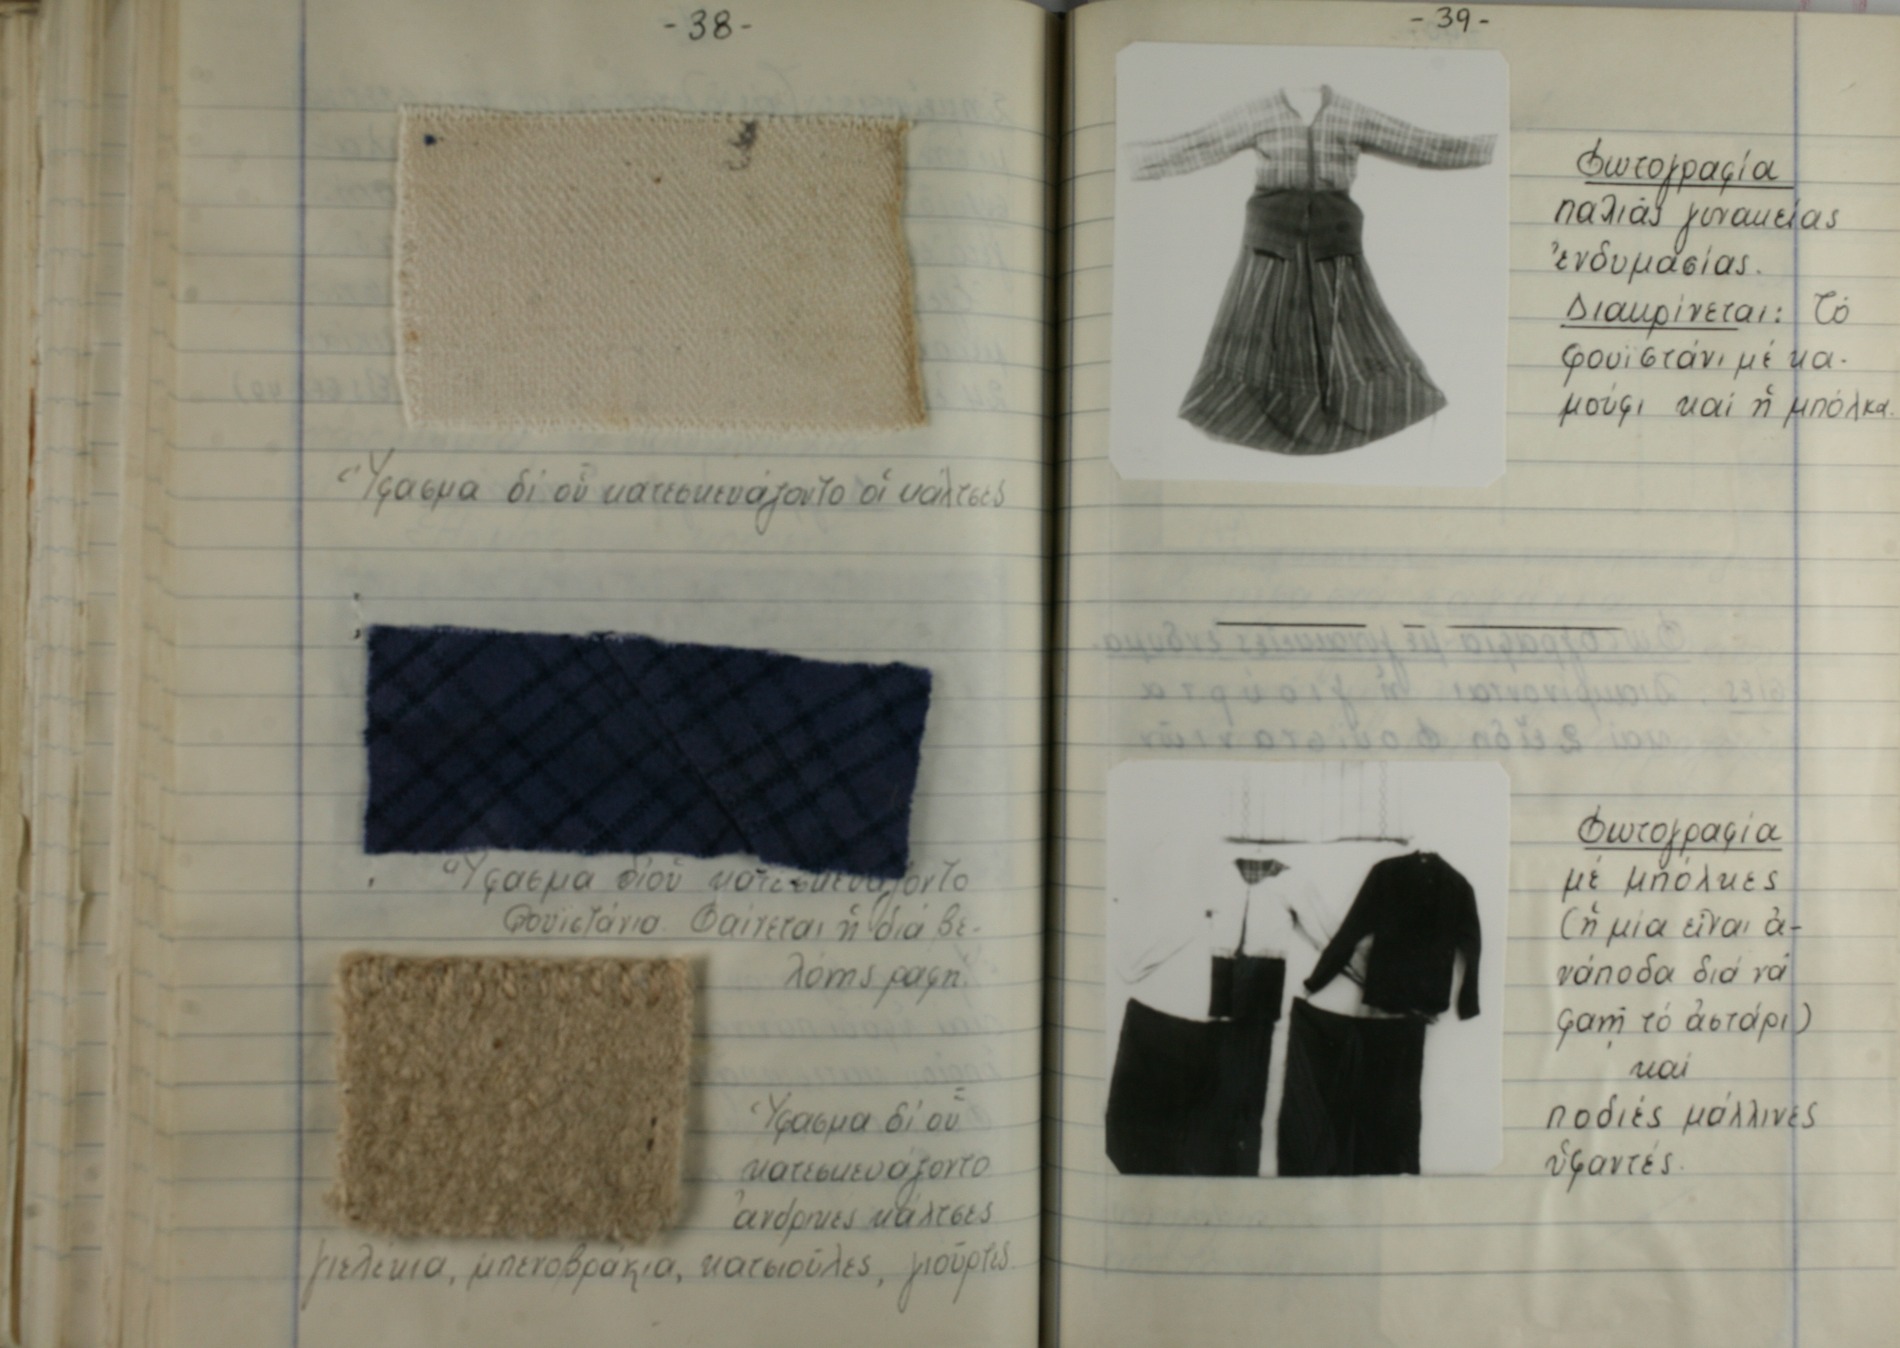 -38-
Ὕφασμα δι' οὗ κατεσκευάζοντο οἱ κάλτσες
Ὕφασμα δι' οὗ κατεσκευάζοντο
Φουϊστάνια. Φαίνεται ἡ διά βε-
λόνης ραφή.
Ὕφασμα δι' οὗ
κατεσκευάζοντο
ἀνδρικές κάλτσες
γιελέκια, μπενοβράκια, κατσιοῦλες, γιοῦρτες.
-39-
Φωτογραφία
παλιᾶς γυνακείας
ἐνδυμασίας.
Διακρίνεται: Τό
φουϊστάνι μέ κα-
μούφι καί ἡ μπόλκα.
Φωτογραφία
μέ μπόλκες
(ἡ μία εἶναι ἀ-
νάποδα διά νά
φανῆ τό ἀστάρι)
καί
ποδιές μάλλινες
ὑφαντές.